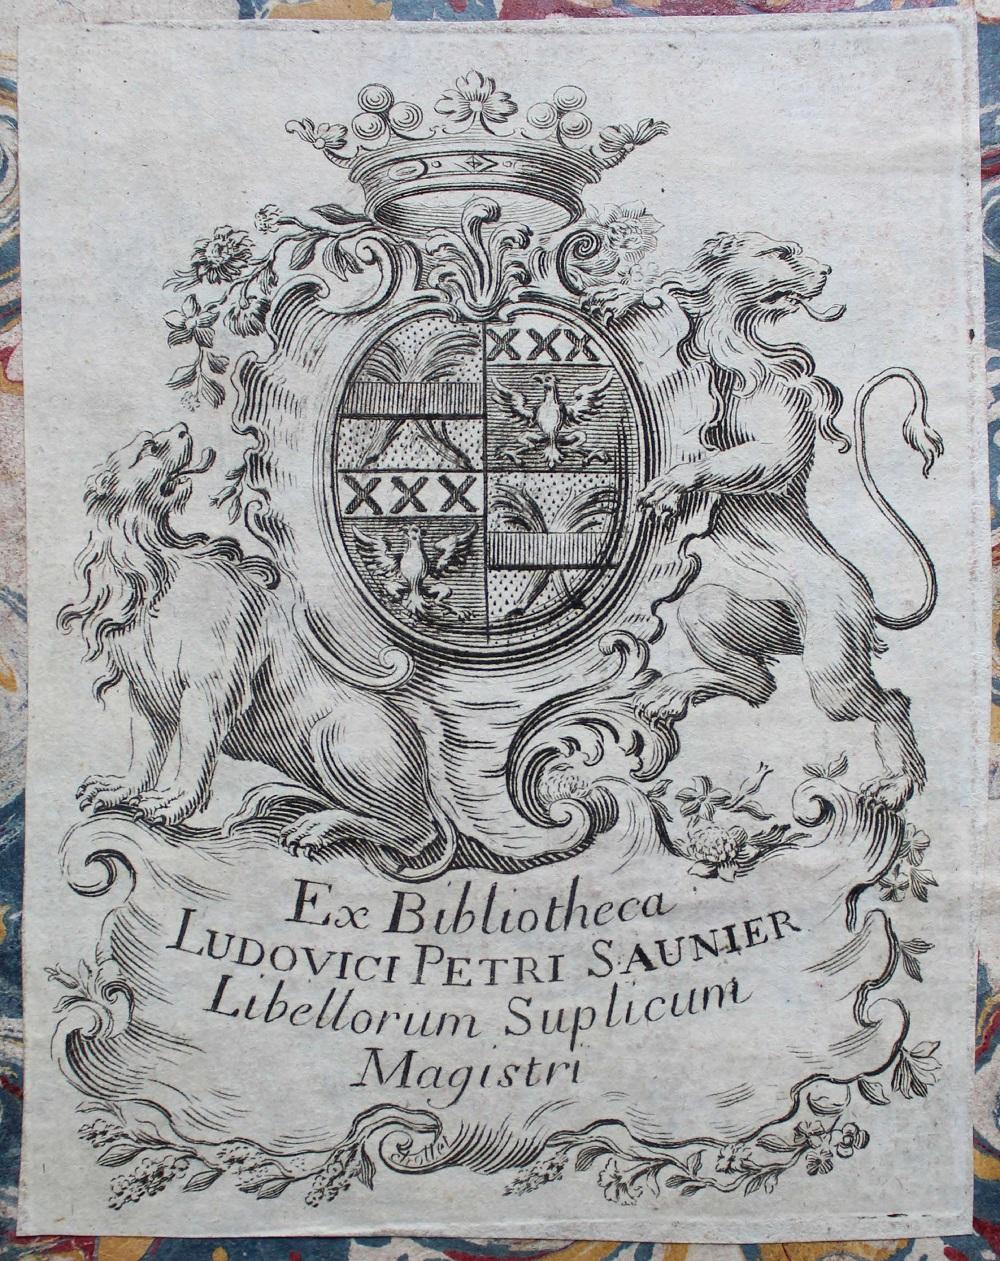 Ex Bibliotheca
LUDOVICI PETRI SAUNIER
Libellorum Suplicum
Magistri